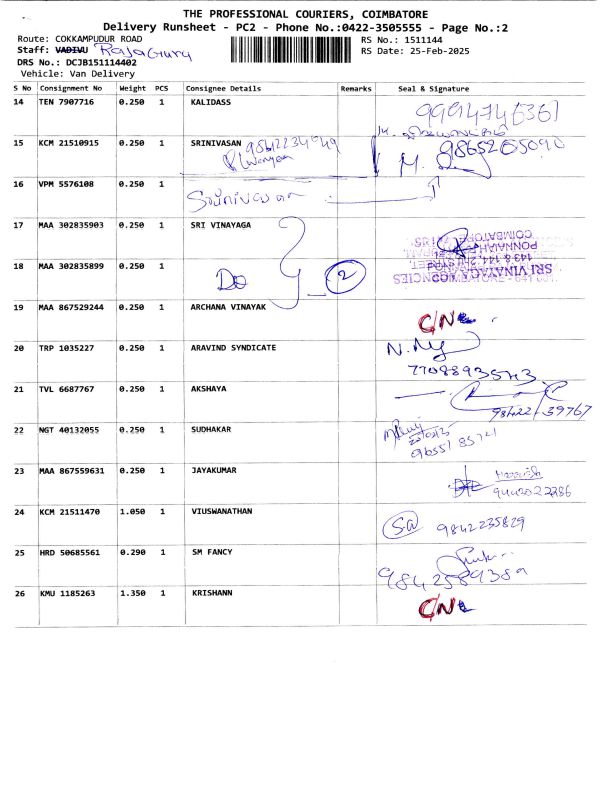 THE PROFESSIONAL COURIERS, COIMBATORE
Delivery Runsheet - PC2 - Phone No.:0422-3505555 - Page No.:2
Route: COKKAMPUDUR ROAD
RS No.: 1511144
Staff: VADIVU Rajaguru
RS Date: 25-Feb-2025
DRS No.: DCJB151114402
Vehicle: Van Delivery
S No Consignment No Weight PCS Consignee Details Remarks Seal & Signature
14 TEN 7907716 0.250 1 KALIDASS
15 KCM 21510915 0.250 1 SRINIVASAN 9865265090
16 VPM 5576108 0.250 1
17 MAA 302835903 0.250 1 SRI VINAYAGA
18 MAA 302835899 0.250 1 Do 2
SRI VINAYAGA AGENCIES
19 MAA 867529244 0.250 1 ARCHANA VINAYAK C/N
20 TRP 1035227 0.250 1 ARAVIND SYNDICATE
7708893543
21 TVL 6687767 0.250 1 AKSHAYA
98422-39767
22 NGT 40132055 0.250 1 SUDHAKAR
23 MAA 867559631 0.250 1 JAYAKUMAR
9442022286
24 KCM 21511470 1.050 1 VIUSWANATHAN Sa 9842235829
25 HRD 50685561 0.290 1 SM FANCY
9842589389
26 KMU 1185263 1.350 1 KRISHANN C/N